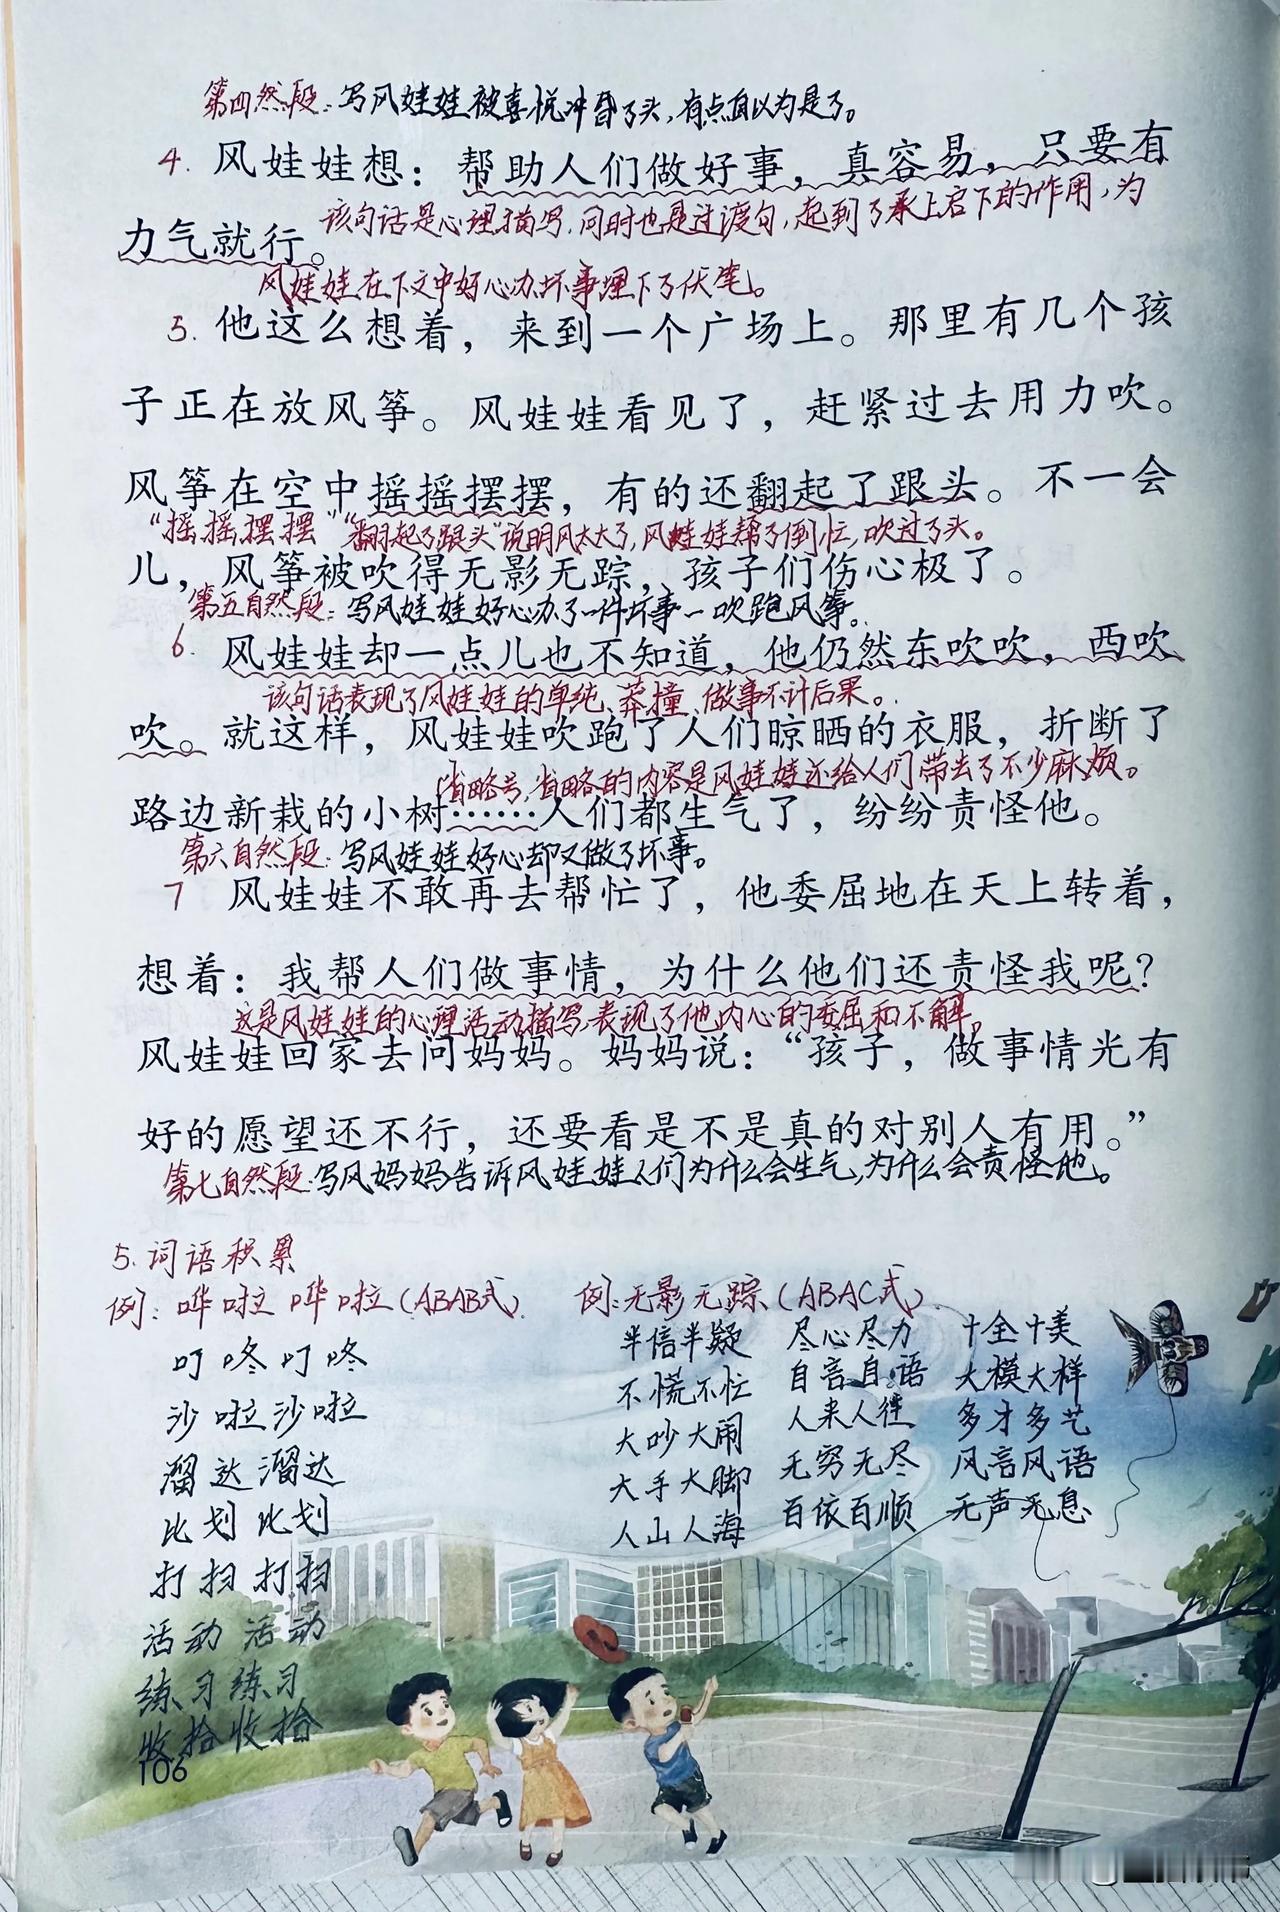 第四然段：写风娃娃被喜悦冲昏了头，有点自以为是了。
4. 风娃娃想：帮助人们做好事，真容易，只要有
力气就行。
该句话是心理描写，同时也是过渡句，起到了承上启下的作用，为
风娃娃在下文中好心办坏事埋下了伏笔。
5. 他这么想着，来到一个广场上。那里有几个孩
子正在放风筝。风娃娃看见了，赶紧过去用力吹。
风筝在空中摇摇摆摆，有的还翻起了跟头。不一会
“摇摇摆摆”“翻起了跟头”说明风太大了，风娃娃帮了倒忙，吹过了头。
儿，风筝被吹得无影无踪，孩子们伤心极了。
第五自然段：写风娃娃好心办了一件坏事－吹跑风筝。
6 风娃娃却一点儿也不知道，他仍然东吹吹，西吹
该句话表现了风娃娃的单纯、莽撞、做事不计后果。
吹。就这样，风娃娃吹跑了人们晾晒的衣服，折断了
省略号，省略的内容是风娃娃还给人们带去了不少麻烦。
路边新栽的小树……人们都生气了，纷纷责怪他。
第六自然段：写风娃娃好心却又做了坏事。
7 风娃娃不敢再去帮忙了，他委屈地在天上转着，
想着：我帮人们做事情，为什么他们还责怪我呢？
这是风娃娃的心理活动描写，表现了他内心的委屈和不解。
风娃娃回家去问妈妈。妈妈说：“孩子，做事情光有
好的愿望还不行，还要看是不是真的对别人有用。”
第七自然段：写风妈妈告诉风娃娃人们为什么会生气，为什么会责怪他。
5. 词语积累
例：哗啦哗啦（ABAB式）
叮咚叮咚
沙啦沙啦
溜达溜达
比划比划
打扫打扫
活动活动
练习练习
收拾收拾
例：无影无踪（ABAC式）
半信半疑 尽心尽力 十全十美
不慌不忙 自言自语 大模大样
大吵大闹 人来人往 多才多艺
大手大脚 无穷无尽 风言风语
人山人海 百依百顺 无声无息
106